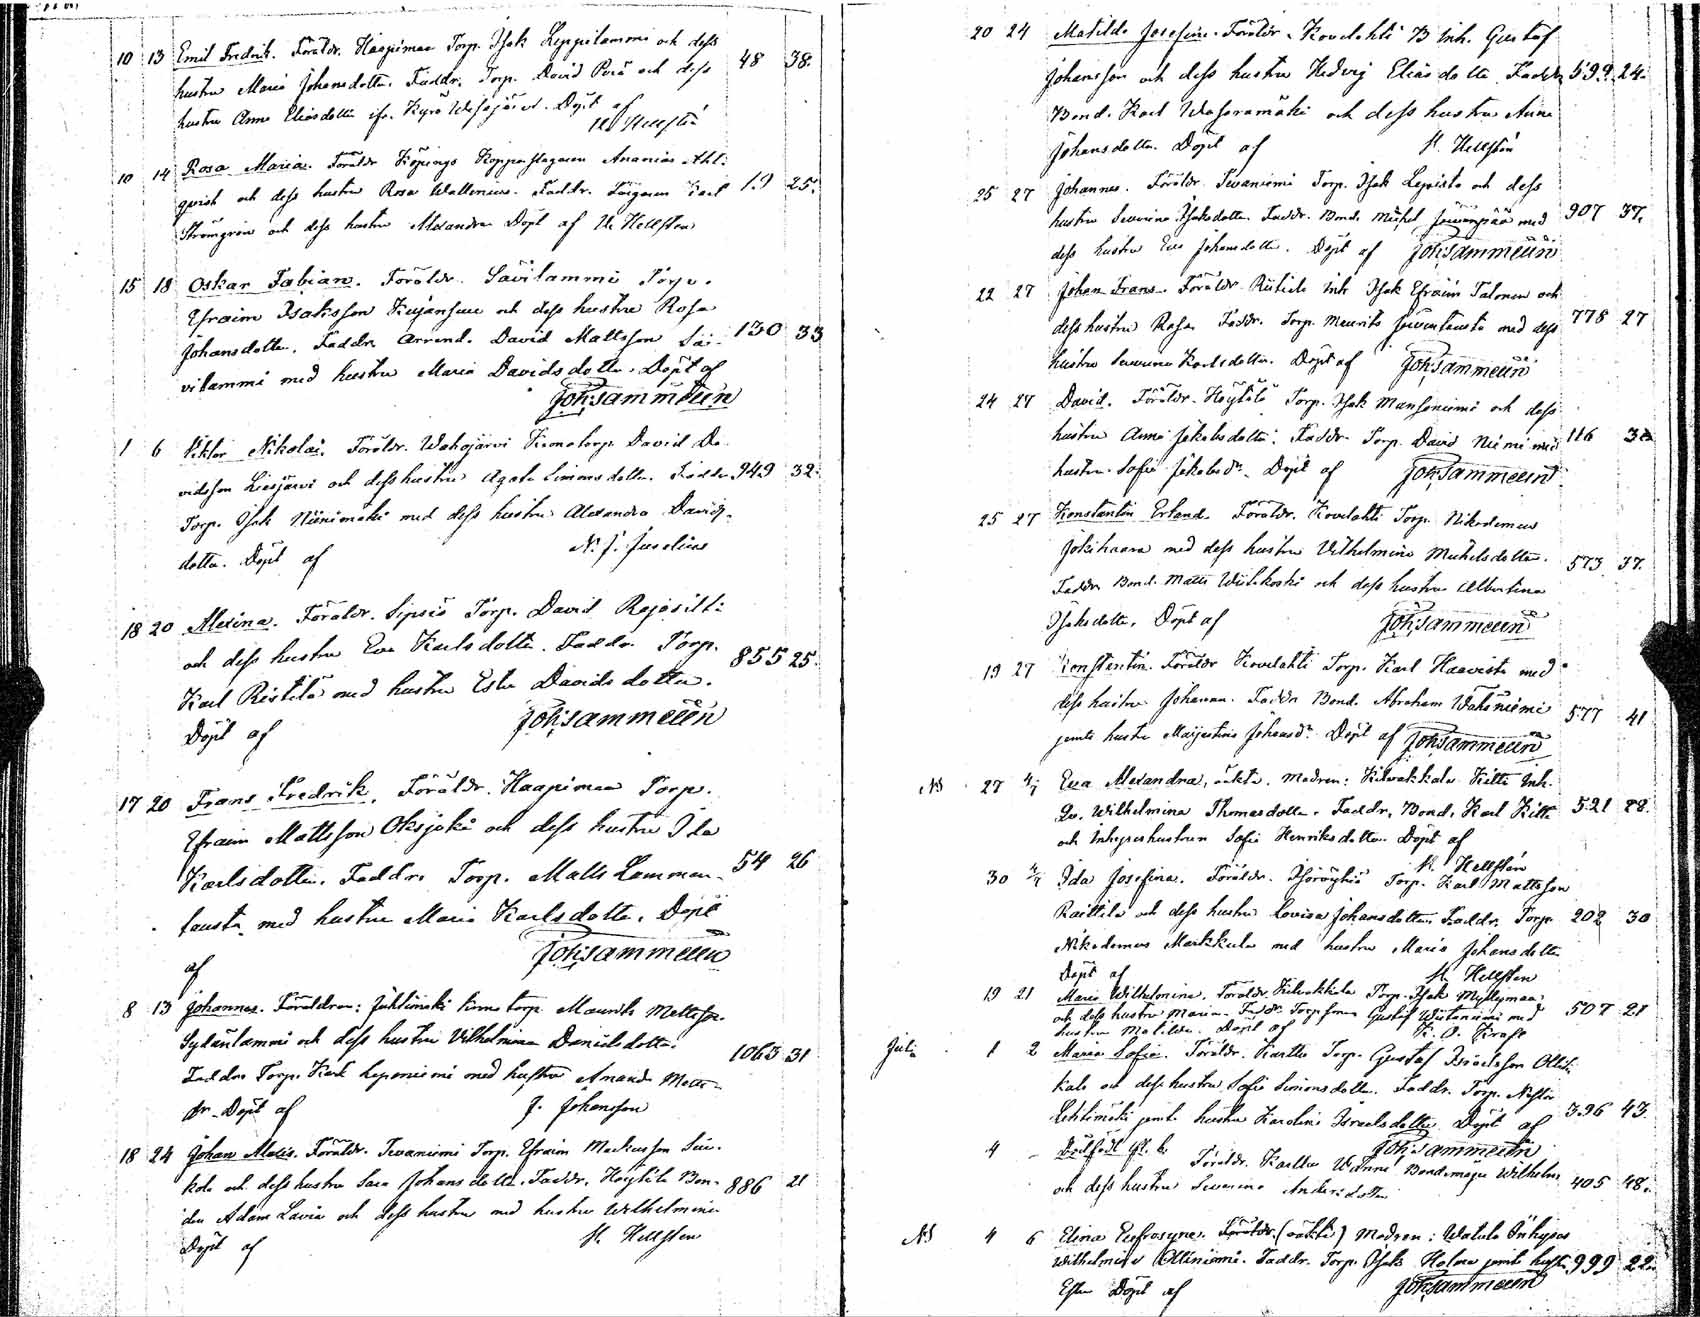 10 13 Emil Fredrik. Föräldr. Haapimaa Torp. Isak Leppilammi och dess
hustru Maria Johansdotter. Faddr. Torp. David Perä och dess 48 38.
hustru Anna Eliasdotter ifr. Kyrö Wesajärvi. Döpt af
Hellstén
10 14 Rosa Maria. Föräldr. Köpings Kopparslagaren Ananias Ahl-
qvist och dess hustru Rosa Wallenius. Faddr. Karl 19 25.
Strömgren och dess hustru Alexandra Döpt af Hellsten
15 18 Oskar Fabian. Föräldr. Savilammi Torp.
Efraim Isaksson och dess hustru Rosa
Johansdotter. Faddr. arrend. David Mattsson Sa- 130 33
vilammi med hustru Maria Davidsdotter. Döpt af
Joh: Sammelin
1 6 Viktor Nikolai. Föräldr. Wahojärvi Kronotorp. David Da-
vidsson Liesjärvi och dess hustru Agata Simonsdotter. Faddr. 949 32.
Torp. Isak Niinimäki med dess hustru Alexandra Davids-
dotter. Döpt af N. J. Juselius
18 20 Alexina. Föräldr. Sipsiö Torp. David Rajasilt
och dess hustru Eva Karlsdotter. Faddr. Torp. 855 25.
Karl Ristilä med hustru Ester Davidsdotter.
Döpt af Joh: Sammelin
17 20 Frans Fredrik. Föräldr. Haapimaa Torp.
Efraim Mattsson Oksjoki och dess hustru Ida
Karlsdotter. Faddr. Torp. Matts Lamman- 54 26
fausta med hustru Maria Karlsdotter. Döpt
af Joh: Sammelin
8 13 Johannes. Föräldrar: kronotorp. Maurits Mattsson
Sydänlammi och dess hustru Vilhelmina Danielsdotter. 1063 31
Faddr. Torp. Karl Leponiemi med hustru Amanda Matts-
dr. Döpt af J. Johansson
18 24 Johan Alexis. Föräldr. Tevaniemi Torp. Efraim Markusson
kola och dess hustru Sara Johansdotter. Faddr. Höytilä Bon- 886 21
den Adam Lavia och dess hustru med hustru Wilhelmina
Döpt af Hellsten
20 24 Matilda Josefina. Föräldr. Kovelahti B Inh. Gustaf
Johansson och dess hustru Hedvig Eliasdotter. Faddr. 599 24.
Bond. Karl Wasaramäki och dess hustru Anna
Johansdotter. Döpt af Hellstén
25 27 Johannes. Föräldr. Tevaniemi Torp. Isak Lepistö och dess
hustru Severina Isaksdotter. Faddr. Bond. Michel Järvenpää med 907 37.
dess hustru Eva Johansdotter. Döpt af Joh: Sammelin
22 27 Johan Frans. Föräldr. Ristilä Inh. Isak Efraim Talonen och
dess hustru Rosa. Faddr. Torp. Maurits Järventausta med dess 778 27
hustru Severina Karlsdotter. Döpt af Joh: Sammelin
24 27 David. Föräldr. Höytilä Torp. Isak Mansoniemi och dess
hustru Anna Jakobsdotter. Faddr. Torp. David Niemi med 116
hustru Sofia Jakobsdr. Döpt af Joh: Sammelin
25 27 Konstantin Erland. Föräldr. Kovelahti Torp. Nikodemus
Jokihaara med dess hustru Vilhelmina Michelsdotter. 573 37.
Faddr. Bond. Matts och dess hustru Albertina
Isaksdotter. Döpt af Joh: Sammelin
19 27 Konstantin. Föräldr. Kovelahti Torp. Karl Haavisto med
dess hustru Johanna. Faddr. Bond. Abraham Wähäniemi 577 41
jemte hustru Johansdr. Döpt af Joh: Sammelin
NB 27 4/7 Eva Alexandra, oäkta. Modren: Kilvakkala Kitti Inh.
Qv. Wilhelmina Thomasdotter. Faddr. Bond. Karl Kitti 521 28.
och Inhyseshustrun Sofia Henriksdotter. Döpt af
Hellstén
30 Ida Josefina. Föräldr. Torp. Karl Mattsson
Raittila och dess hustru Lovisa Johansdotter. Faddr. Torp. 202 30
Nikodemus Markkula med hustru Maria Johansdotter
Döpt af Hellsten
19 21 Maria Wilhelmina. Föräldr. Kilvakkala Torp. Isak Myllymaa
och dess hustru Maria. Faddr. Torpson Gustaf med 507 21
hustru Matilda. Döpt af K. O.
Juli 1 2 Maria Sofia. Föräldr. Kartto Torp. Gustaf Israelsson
kala och dess hustru Sofia Simonsdotter. Faddr. Torp. Nestor
Lehtimäki jemte hustru Karolina Israelsdotter. Döpt af 396 43.
Joh: Sammelin
4 – Dödfödt Föräldr. Kartto Bondemågen Wilhelm
och dess hustru Severina Andersdotter 405 48.
NB 4 6 Elina Eufrosyne. Föräldr. (oäkta) Modren: Watula Inhyses
Wilhelmina Olliniemi. Faddr. Torp. Isak Holma jemte hustru 999 22.
Ester Döpt af Joh: Sammelin